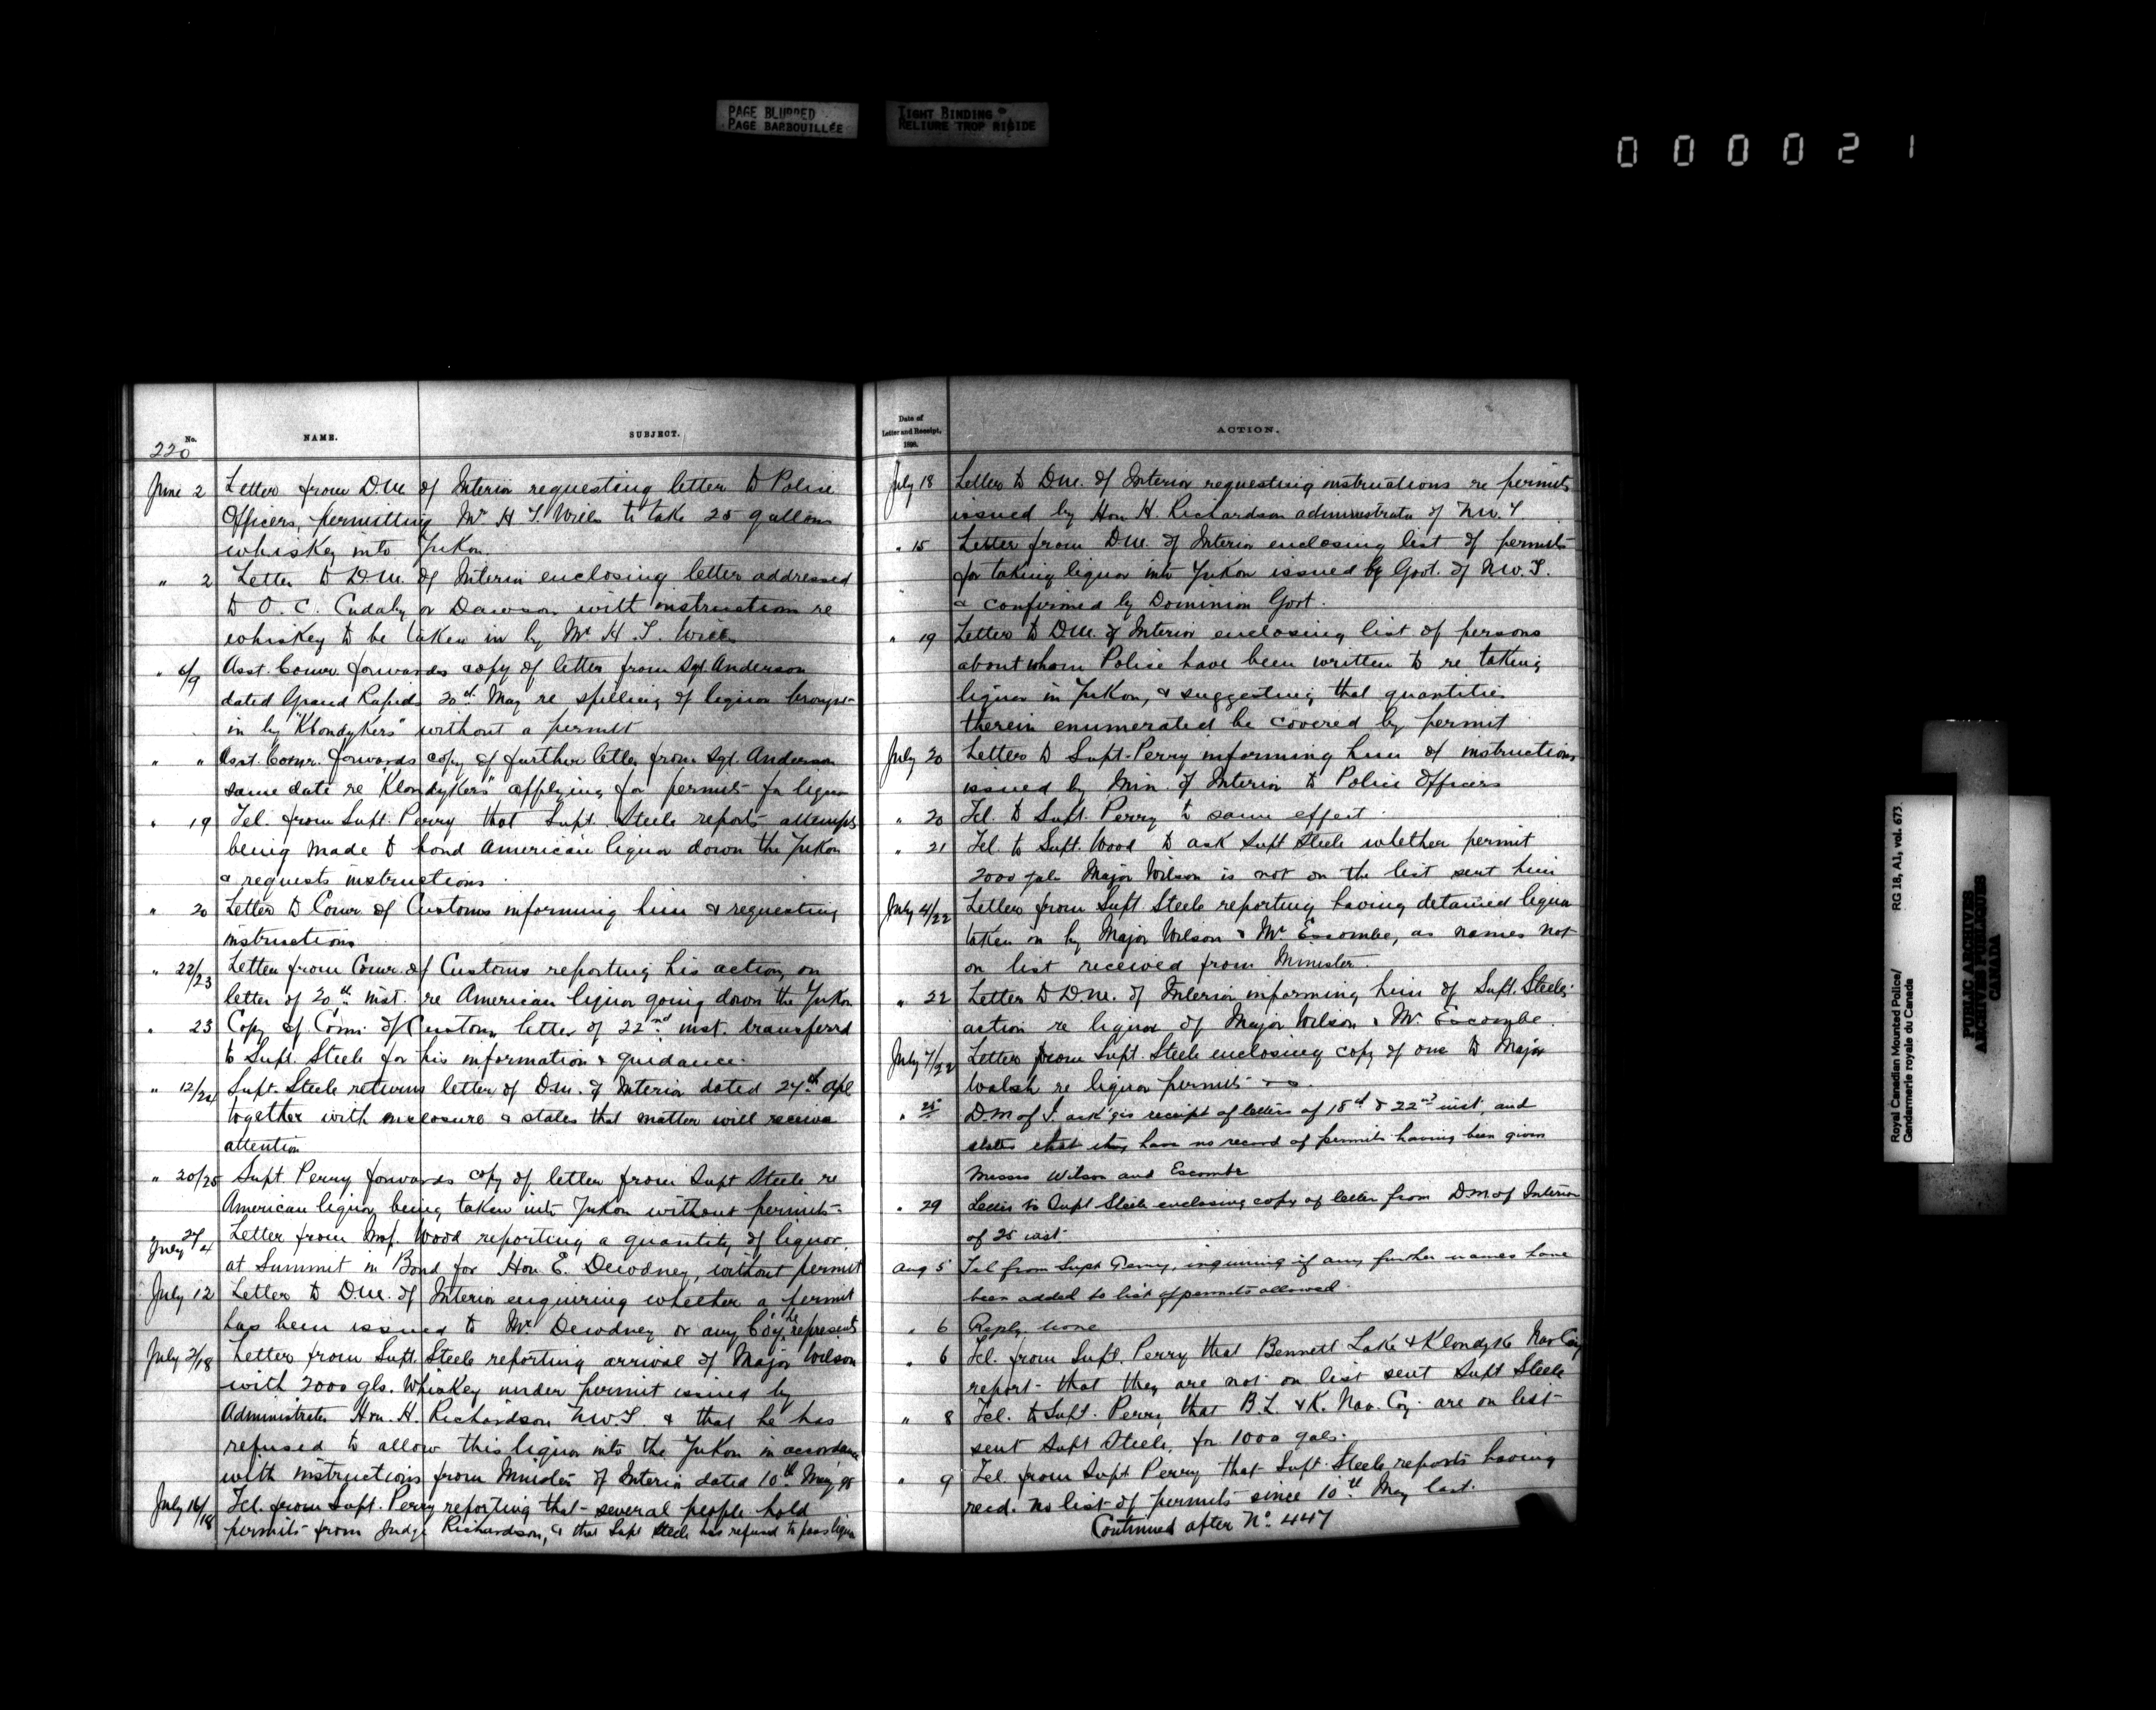 PAGE BLURRED
PAGE BARBOUILLÉE
TIGHT BINDING
RELIURE TROP RIGIDE
000021
No.
NAME.
SUBJECT.
220
June 2 Letter from D.M. of Interior requesting letter to Police
Officers, permitting Mr H. T. Wills to take 25 gallons
whiskey into Yukon.
" 2 Letter to D.M. of Interior enclosing letter addressed
to O. C. Cudahy or Dawson with instructions re
whiskey to be taken in by Mr H. T. Wills
" 6/9 Asst. Comr. forwards copy of letter from Sgt. Anderson
dated Grand Rapids 20th May re spilling of liquor brought
in by "Klondykers" without a permit
" " Asst. Comr. forwards copy of further letter from Sgt. Anderson
same date re "Klondykers" applying for permits for liquor
" 19 Tel. from Supt. Perry that Supt. Steele reports attempts
being made to bond American liquor down the Yukon
& requests instructions.
" 20 Letter to Comr. of Customs informing him & requesting
instructions
" 22/23 Letter from Comr. of Customs reporting his action on
letter of 20th inst. re American liquor going down the Yukon
" 23 Copy of Comr. of Customs letter of 22nd inst. transferred
to Supt. Steele for his information & guidance.
" 12/24 Supt. Steele returns letter of D.M. of Interior dated 27th Apl
together with enclosure & states that matter will receive
attention
" 20/25 Supt. Perry forwards copy of letter from Supt Steele re
American liquor being taken into Yukon without permits.
27/July 4 Letter from Wood reporting a quantity of liquor
at Summit in Bond for Hon. E. Dewdney, without permit
July 12 Letter to D.M. of Interior enquiring whether a permit
has been issued to Mr. Dewdney or any Coy. he represents
July 2/18 Letter from Supt. Steele reporting arrival of Major Wilson
with 2000 gls. Whiskey under permit issued by
Administrator Hon. H. Richardson N.W.T. & that he has
refused to allow this liquor into the Yukon in accordance
with instructions from Minister of Interior dated 10th May '98
July 16/18 Tel. from Supt. Perry reporting that several people hold
permits from Judge Richardson, & that Supt Steele has refused to pass liquor
Date of
Letter and Receipt,
1898.
ACTION.
July 18 Letter to D.M. of Interior requesting instructions re permits
issued by Hon H. Richardson administrator of N.W.T
" 15 Letter from D.M. of Interior enclosing list of permits
for taking liquor into Yukon issued by Govt. of N.W.T.
& confirmed by Dominion Govt.
" 19 Letter to D.M. of Interior enclosing list of persons
about whom Police have been written to re taking
liquor in Yukon, & suggesting that quantities
therein enumerated be covered by permit
July 20 Letters to Supt. Perry informing him of instructions
issued by Min. of Interior to Police Officers
" 20 Tel. to Supt. Perry to same effect.
" 21 Tel. to Supt. Wood to ask Supt Steele whether permit
2000 gals Major Wilson is not on the list sent him
July 4/22 Letter from Supt. Steele reporting having detained liquor
taken on by Major Wilson & Mr Escombe, as names not
on list received from Minister.
" 22 Letter to D.M. of Interior informing him of Supt. Steele's
action re liquor of Major Wilson & Mr. Escombe.
July 7/22 Letter from Supt. Steele enclosing copy of one to Major
Walsh re liquor permits
" 25 D.M of I. ack'ges receipt of letters of 18th & 22nd inst and
states that they have no record of permits having been given
Messrs Wilson and Escombe
" 29 Letter to Supt Steele enclosing copy of letter from D.M of Interior
of 25 inst.
Aug 5 Tel from Supt Perry, inquiring if any further names have
been added to list of permits allowed.
" 6 Reply. None
" 6 Tel. from Supt. Perry that Bennett Lake & Klondyke Nav Coy
report that they are not on list sent Supt Steele
" 8 Tel. to Supt. Perry, that B.L. & K. Nav. Coy. are on list
sent Supt Steele, for 1000 gals.
" 9 Tel. from Supt Perry that Supt. Steele reports having
recd. no list of permits since 10th May last.
Continued after No. 447
Royal Canadian Mounted Police/ RG 18, A1, vol. 673.
Gendarmerie royale du Canada
PUBLIC ARCHIVES
ARCHIVES PUBLIQUES
CANADA